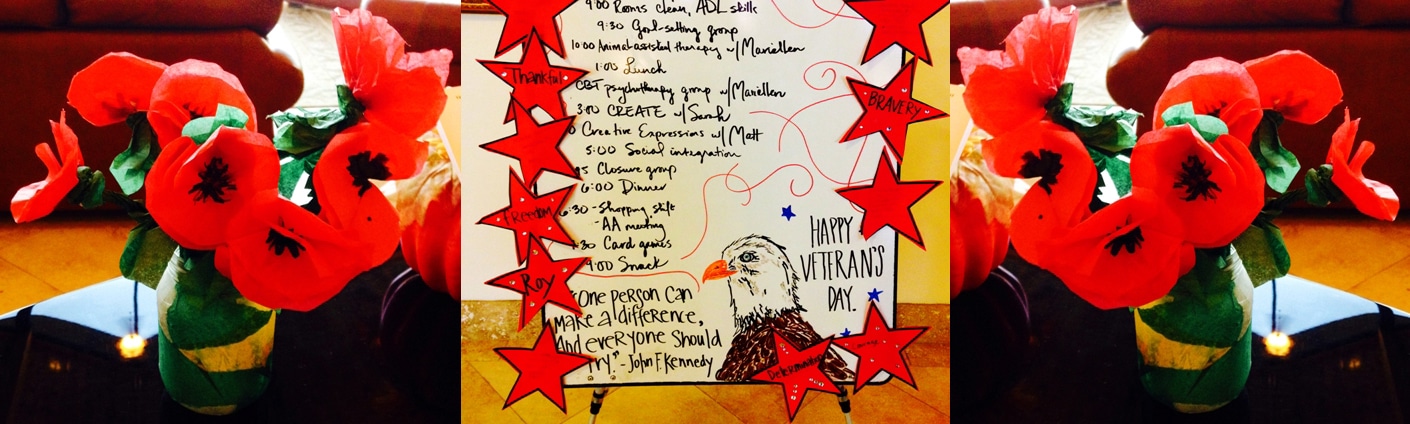 9:00 Rooms clean, ADL skills
9:30 Goal-setting group
10:00 Animal-assisted therapy w/Mariellen
1:00 Lunch
CBT psychotherapy group w/Mariellen
3:00 CREATE w/Sarah
0 Creative Expressions w/Matt
5:00 Social integration
Closure group
6:00 Dinner
6:30 - Shopping skills
- AA meeting
:30 Card games
9:00 Snack
"One person can
make a difference,
And everyone should
try." - John F. Kennedy
HAPPY
VETERAN'S
DAY.
Thankful
Freedom
Roy
BRAVERY
Determination
Courage